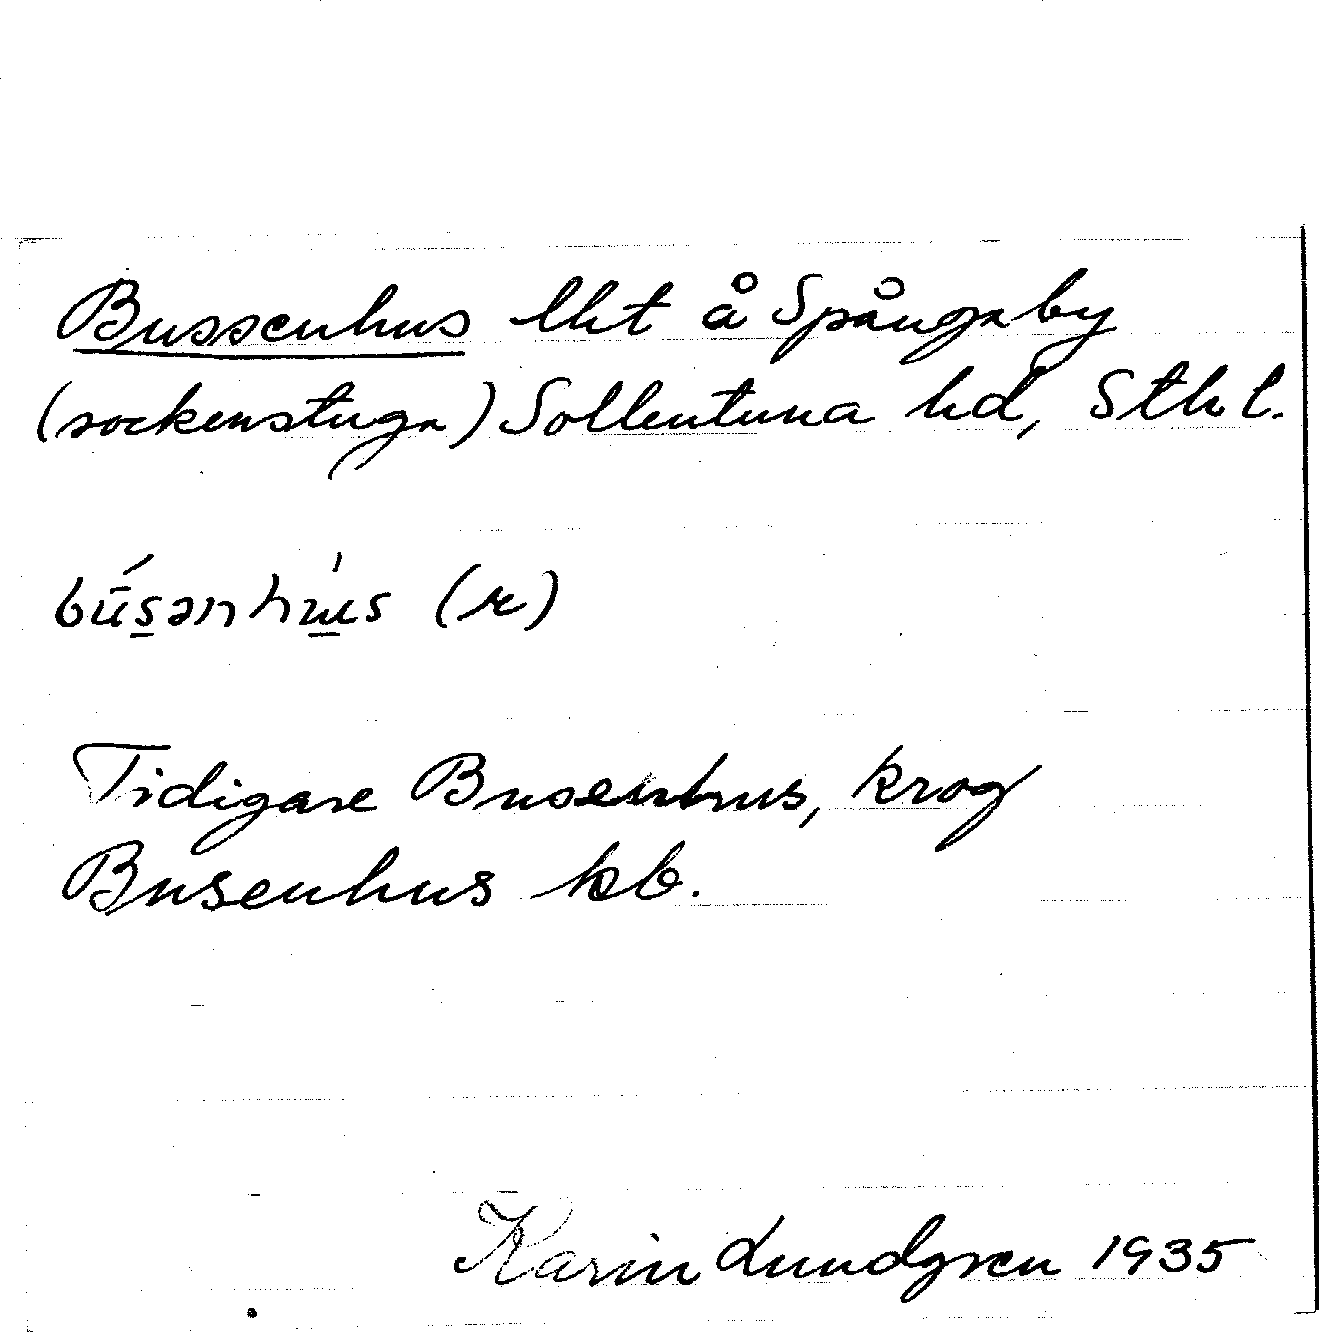 Bussenhus lht å Spångaby
(sockenstuga) Sollentuna hd, Sthl.
(r)
Tidigare Busenhus, krog
Busenhus kb.
Karin Lundgren 1935